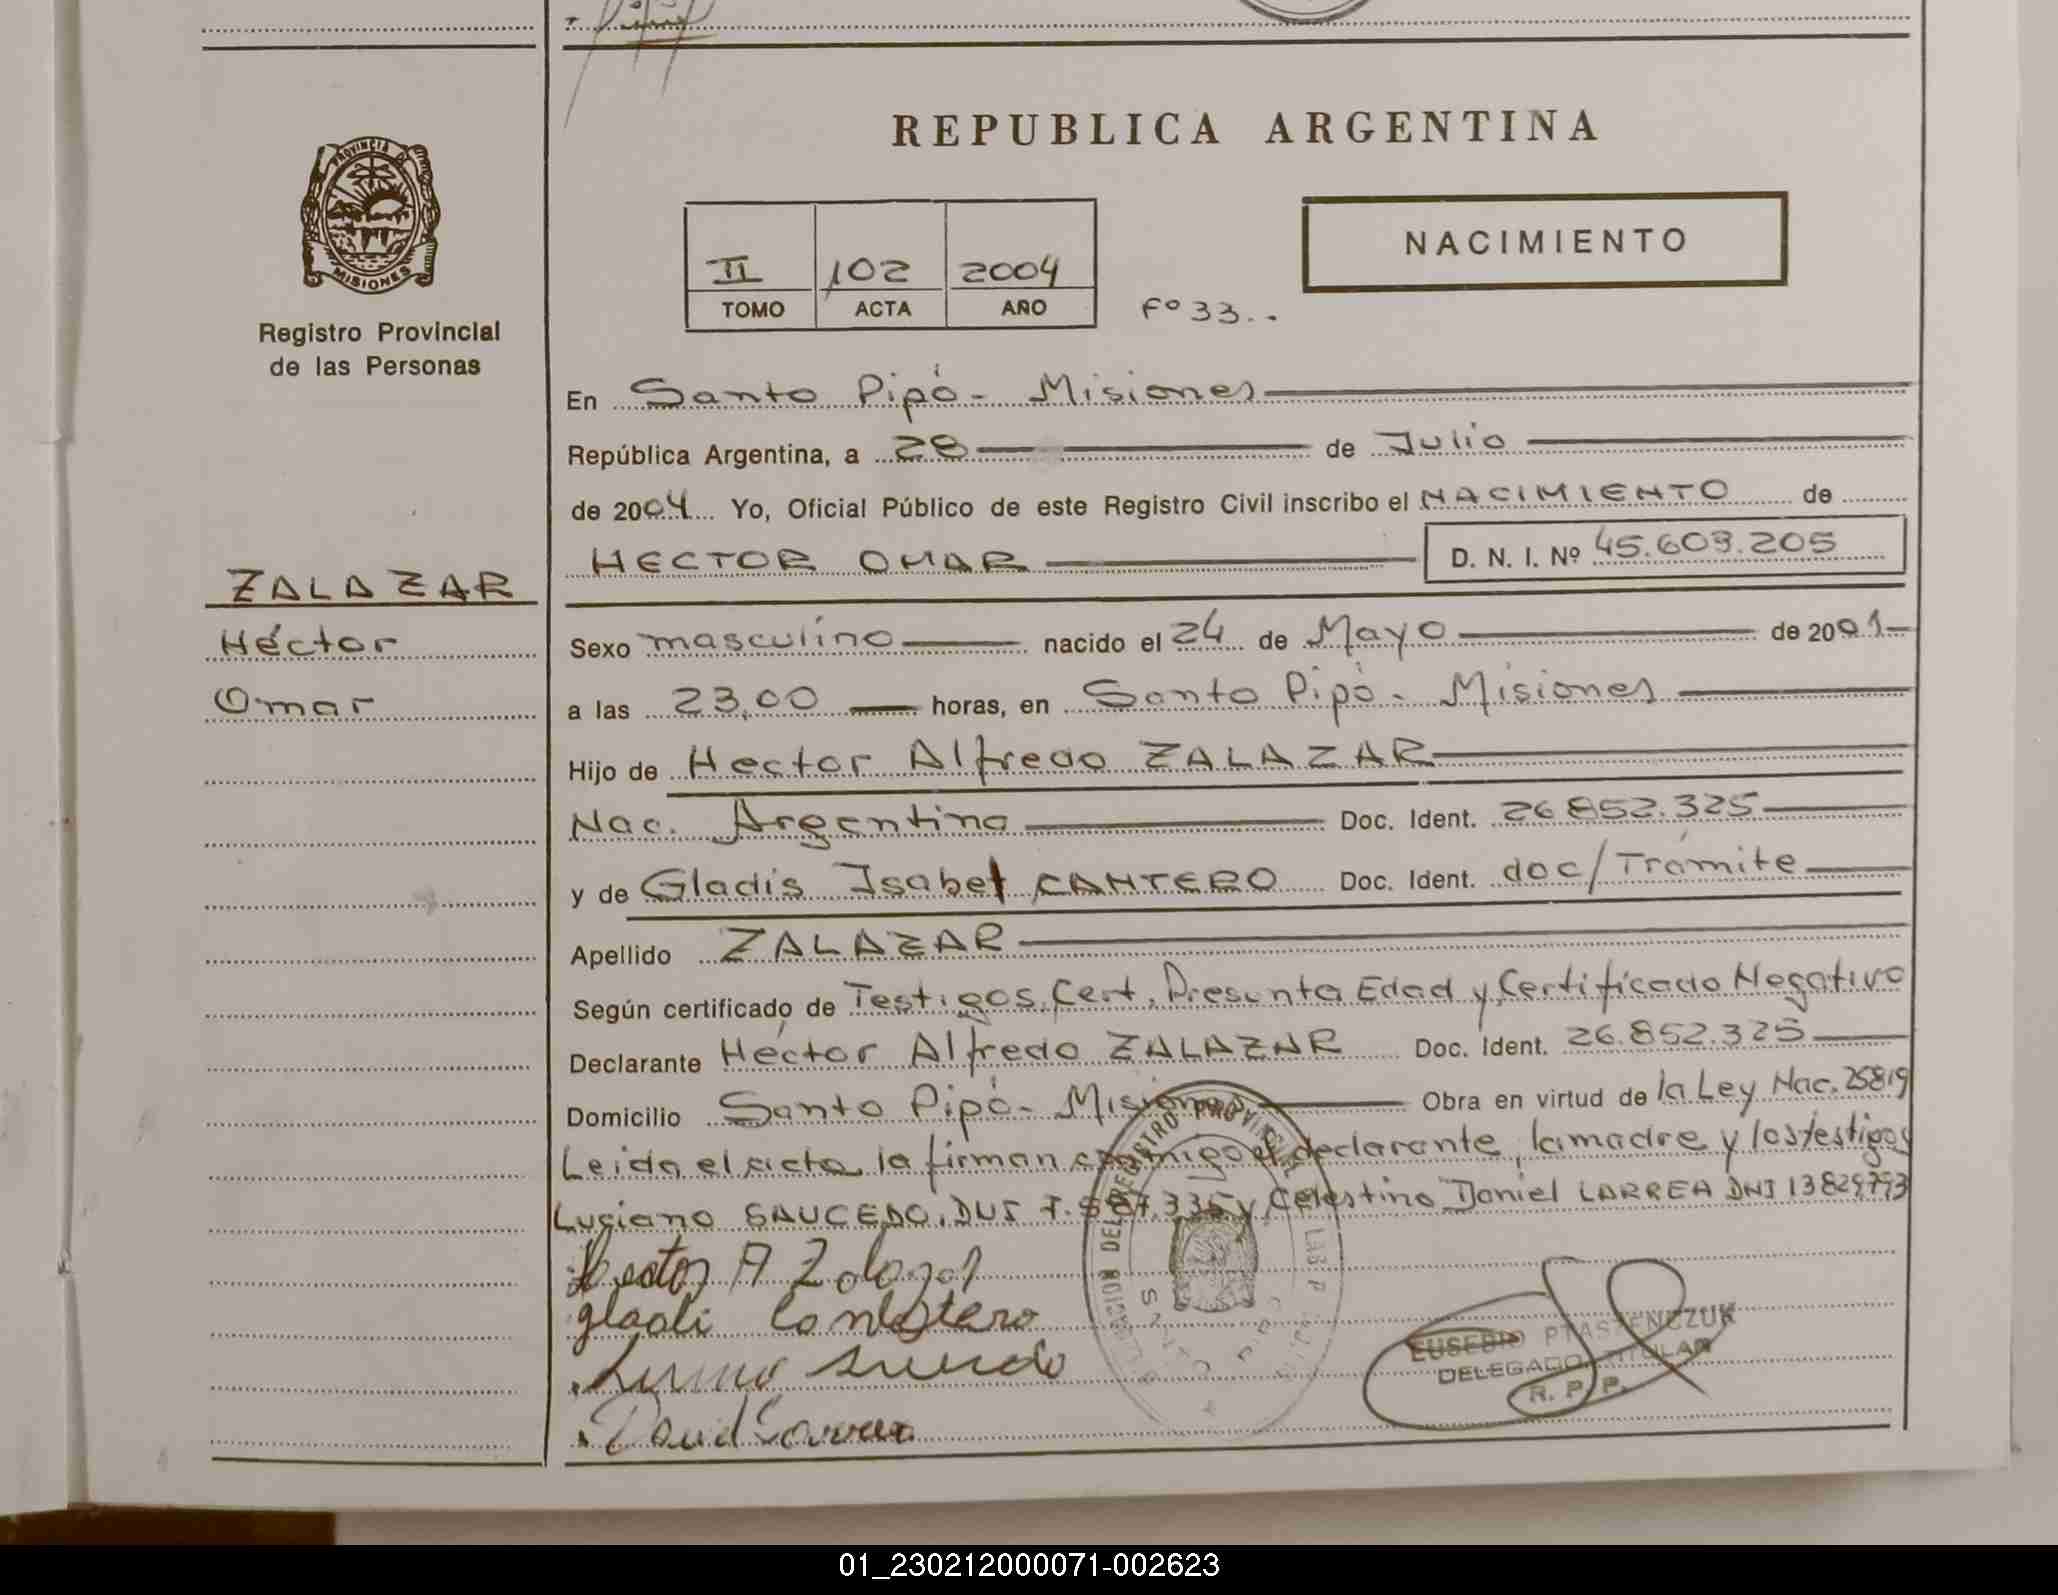 REPUBLICA ARGENTINA
PROVINCIA DE
MISIONES
Registro Provincial
de las Personas
II 102 2004
TOMO ACTA AÑO
Fº 33..
NACIMIENTO
ZALAZAR
Héctor
Omar
En Santo Pipó - Misiones
República Argentina, a 28 de Julio
de 2004 Yo, Oficial Público de este Registro Civil inscribo el NACIMIENTO de
HECTOR OMAR D. N. I. Nº 45.609.205
Sexo masculino nacido el 24 de Mayo de 2001
a las 23,00 horas, en Santo Pipó - Misiones
Hijo de Hector Alfredo ZALAZAR
Nac. Argentina Doc. Ident. 26.852.325
y de Gladis Isabel CANTERO Doc. Ident. doc/Trámite
Apellido ZALAZAR
Según certificado de Testigos, Cert. Presunta Edad y Certificado Negativo
Declarante Héctor Alfredo ZALAZAR Doc. Ident. 26.852.325
Domicilio Santo Pipó - Misiones Obra en virtud de la Ley Nac. 25819
Leida el acta la firman conmigo el declarante, la madre y los testigos
Luciano SAUCEDO, DNI 7.587.335 y Celestino Daniel LARREA DNI 13829793
Hector A Zalazar
EUSEBIO PTASZENCZUK
DELEGADO TITULAR
R. P. P.
01_230212000071-002623